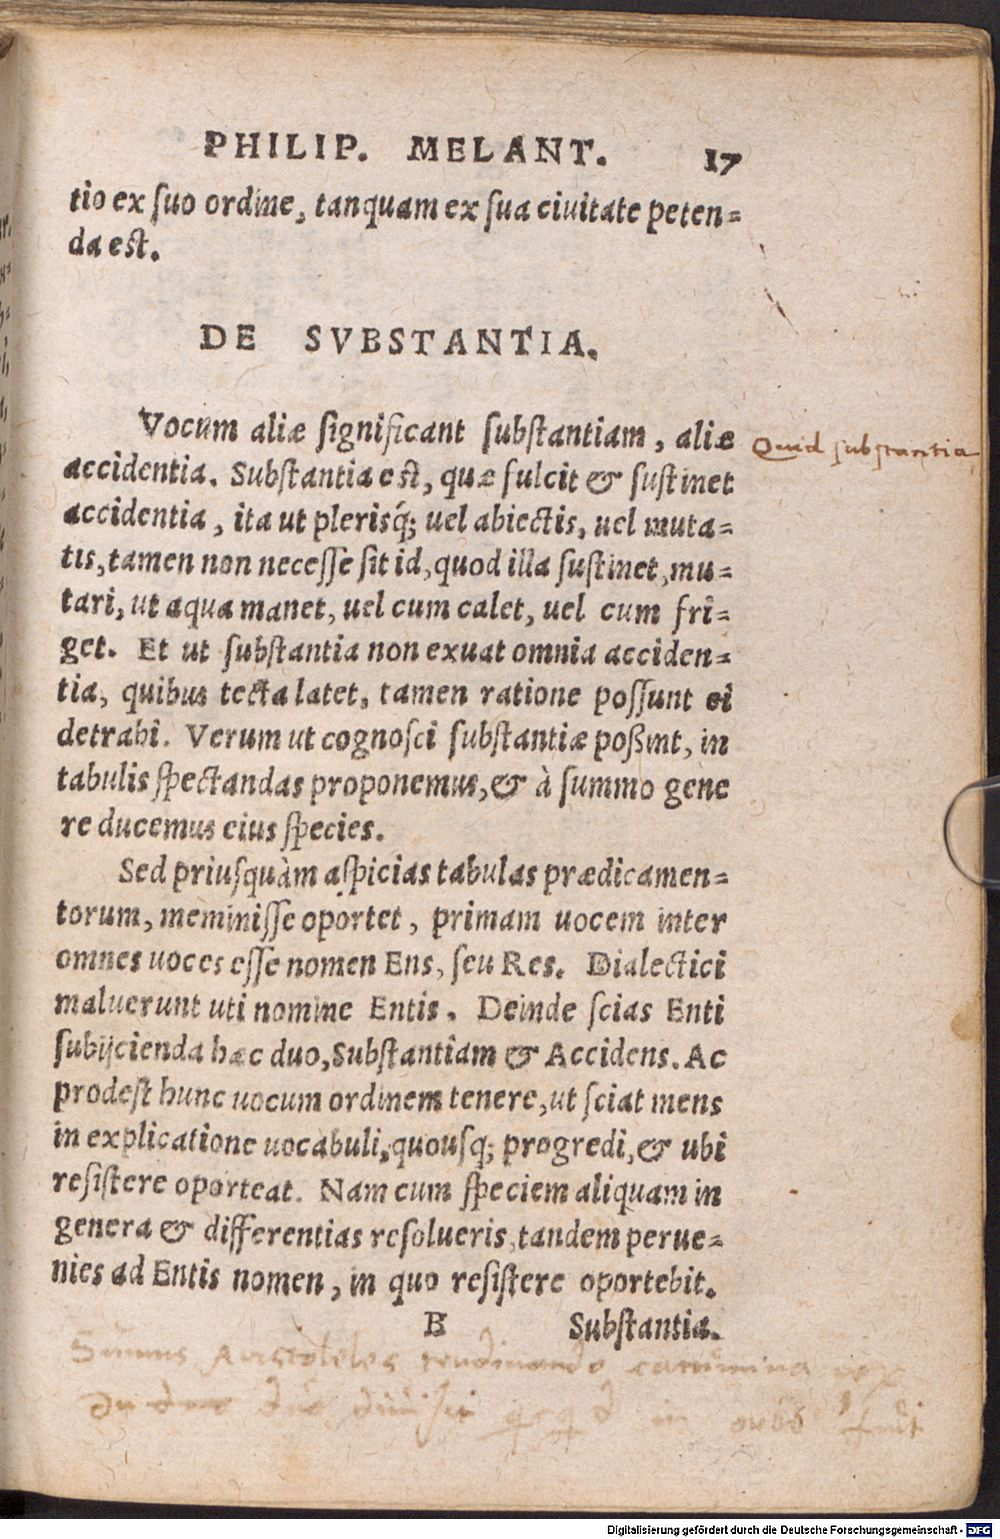 PHILIP. MELANT. 17
tio ex ſuo ordine, tanquam ex ſua ciuitate peten=
da eſt.
DE SVBSTANTIA.
Vocum aliæ ſignificant ſubſtantiam, aliæ
Quid substantia
accidentia. Subſtantia eſt, quæ fulcit & ſuſtinet
accidentia, ita ut pleriſq́; uel abiectis, uel muta=
tis, tamen non neceſſe ſit id, quod illa ſuſtinet, mu=
tari, ut aqua manet, uel cum calet, uel cum fri=
get. Et ut ſubſtantia non exuat omnia acciden=
tia, quibus tecta latet, tamen ratione poſſunt ei
detrahi. Verum ut cognoſci ſubſtantiæ poßint, in
tabulis ſpectandas proponemus, & à ſummo gene
re ducemus eius ſpecies.
Sed priuſquàm aſpicias tabulas prædicamen=
torum, meminiſſe oportet, primam uocem inter
omnes uoces eſſe nomen Ens, ſeu Res. Dialectici
maluerunt uti nomine Entis. Deinde ſcias Enti
ſubijcienda hæc duo, Subſtantiam & Accidens. Ac
prodeſt hunc uocum ordinem tenere, ut ſciat mens
in explicatione uocabuli, quouſq; progredi, & ubi
reſiſtere oporteat. Nam cum ſpeciem aliquam in
genera & differentias reſolueris, tandem perue=
nies ad Entis nomen, in quo reſiſtere oportebit.
B Subſtantia.
Aristoteles
Digitalisierung gefördert durch die Deutsche Forschungsgemeinschaft - DFG